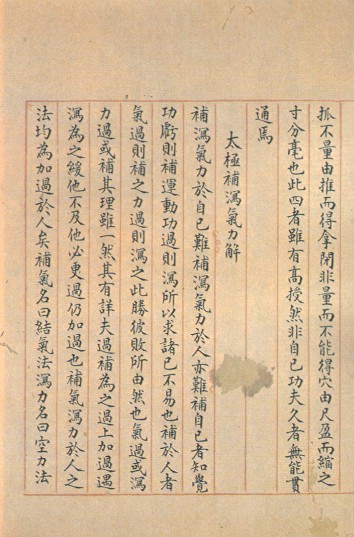 抓不量由推而得拿閉非量而不能得穴由尺盈而縮之
寸分毫也此四者雖有高授然非自己功夫久者無能貫
通焉
太極補瀉氣力解
補瀉氣力於自己難補瀉氣力於人亦難補自己者知覺
功虧則補運動功過則瀉所以求諸己不易也補於人者
氣過則補之力過則瀉之此勝彼敗所由然也氣過或瀉
力過或補其理雖一然其有詳夫過補為之過上加過遇
瀉為之緩他不及他必更過仍加過也補氣瀉力於人之
法均為加過於人矣補氣名曰結氣法瀉力名曰空力法